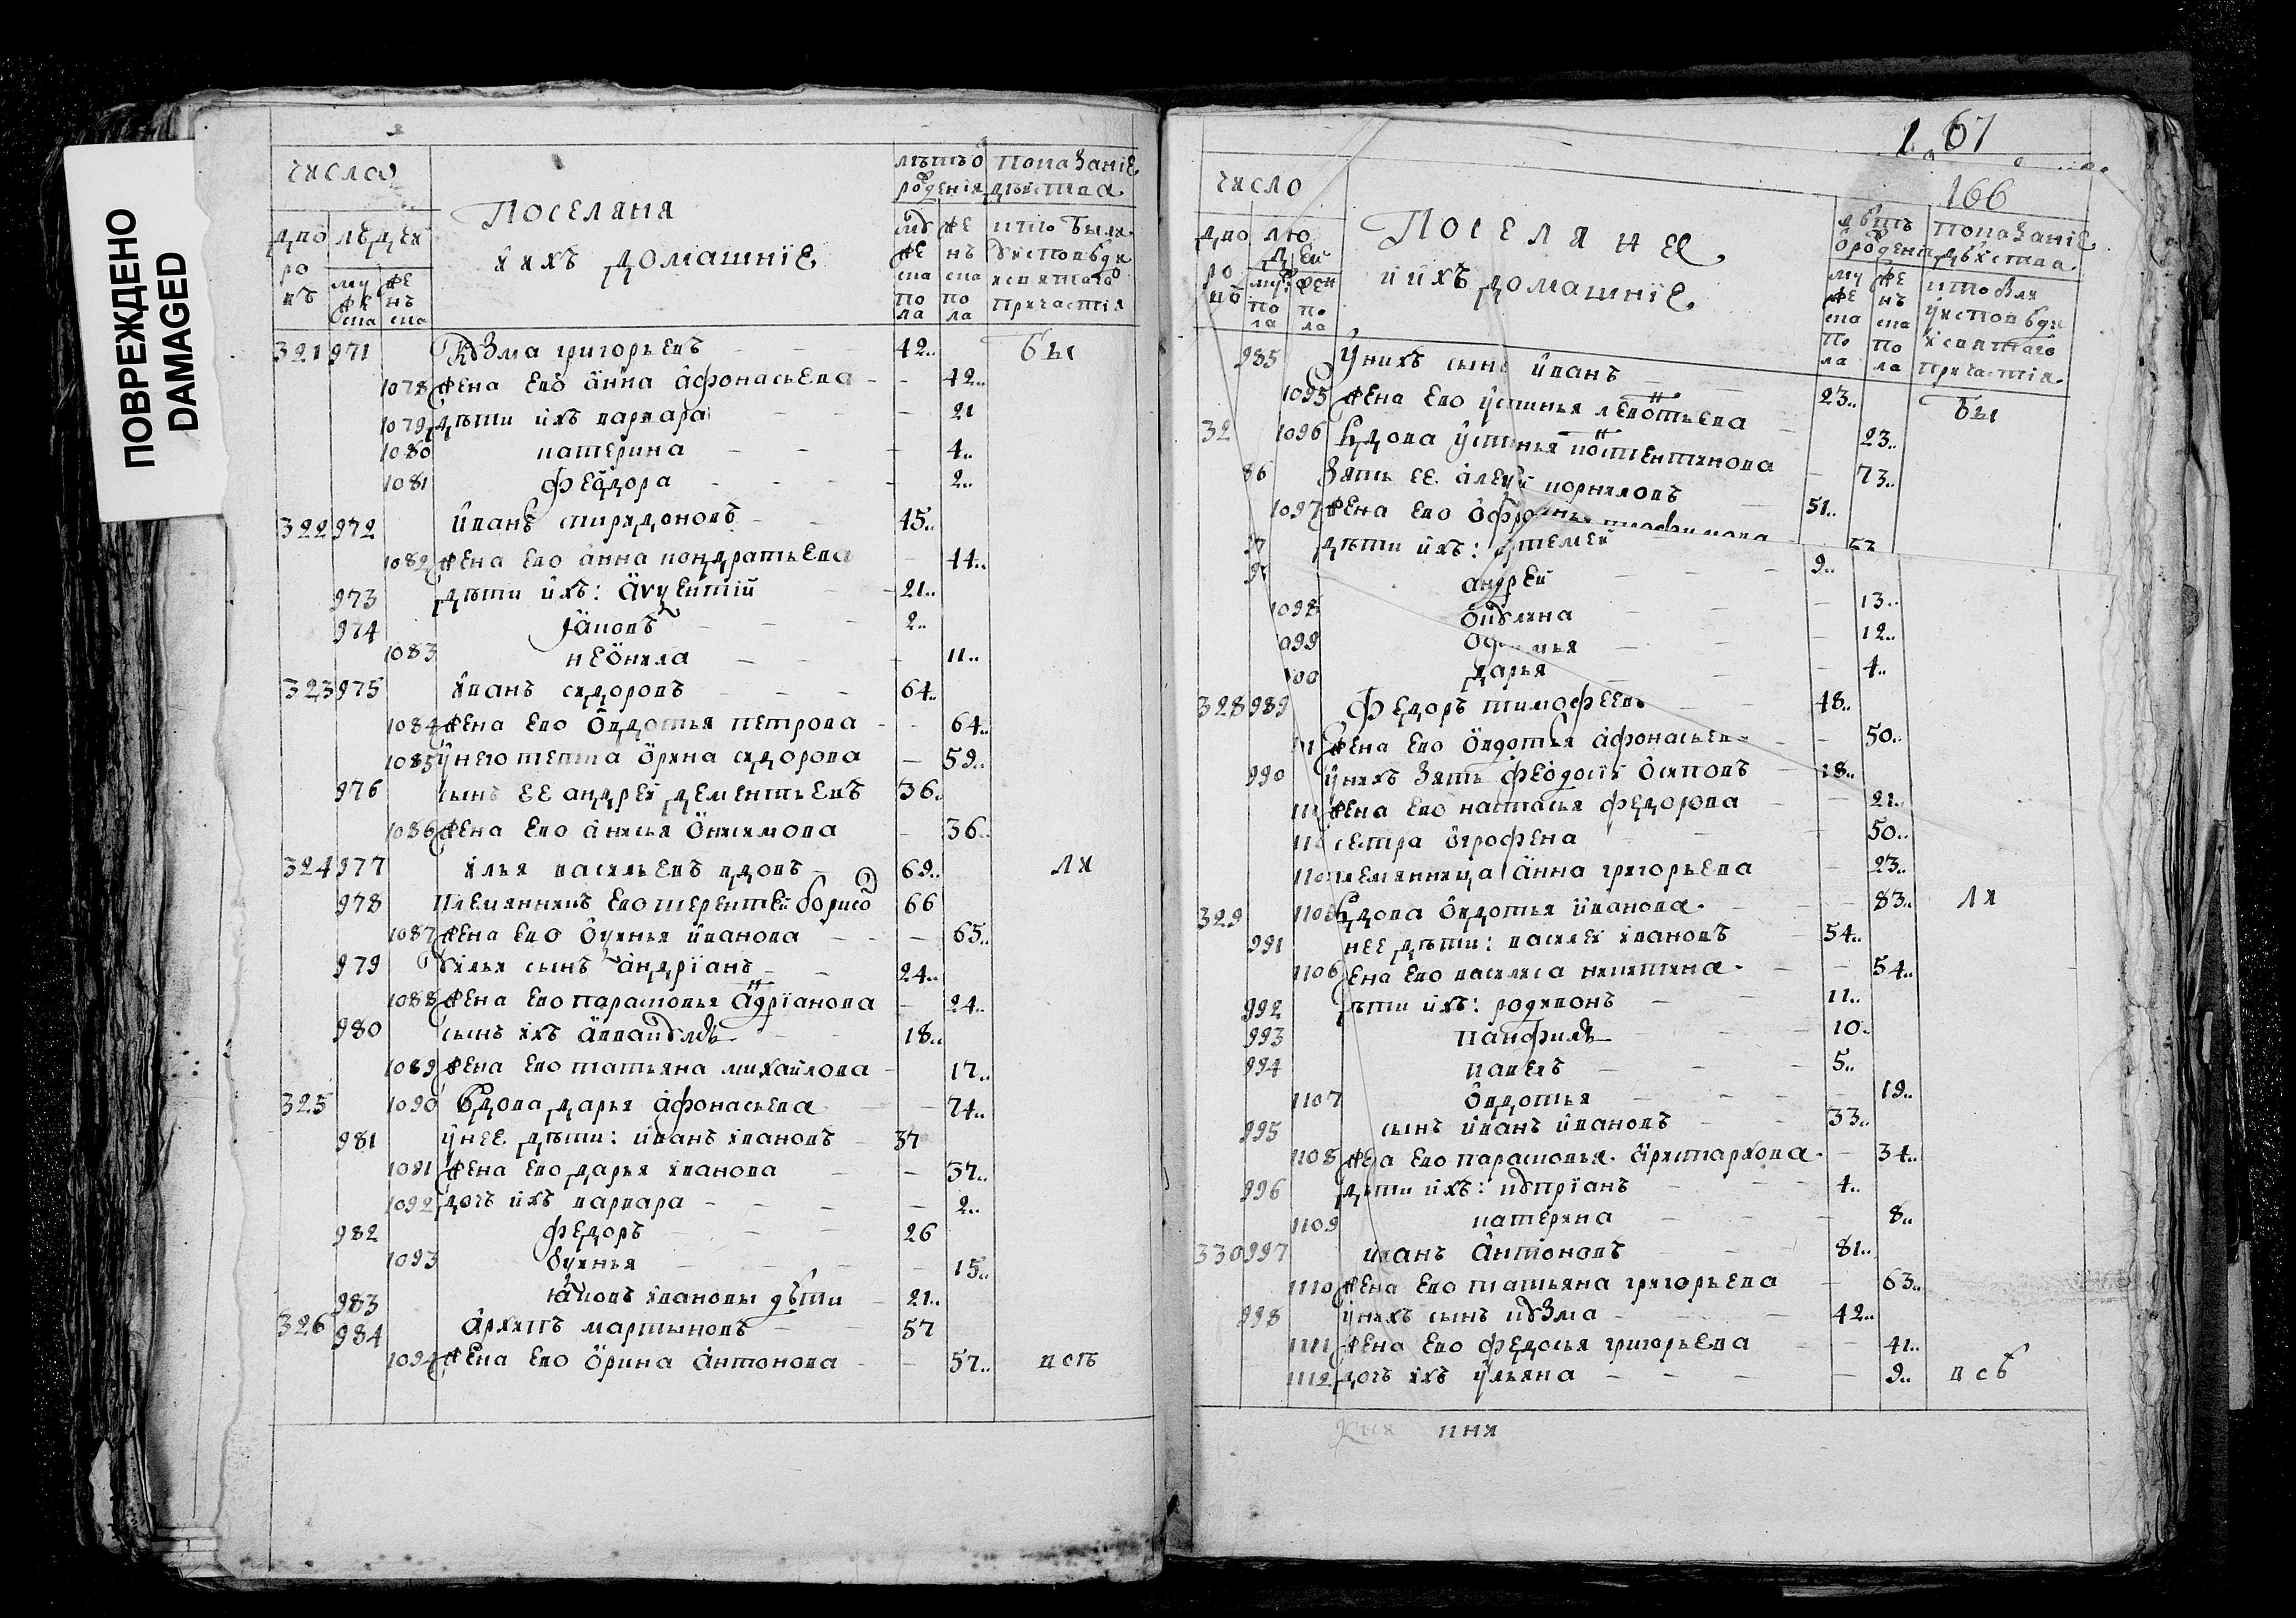 ПОВРЕЖДЕНО
DAMAGED
число
дворовъ
людеи
мужеска
женска
Поселяня
ихъ домашніе
лѣтъ о рожденія
мужеска пола
женска пола
показаніе дѣиства
кто былъ у исповѣди и святаго причастія
321 971 Кузма григорьевъ 42.. бы
1078 жена ево анна афонасьева 42..
1079 дѣти ихъ варвара 21
1080 катерина 4..
1081 федора 2..
322 972 иванъ спиридоновъ 45..
1082 жена ево анна кондратьева 44..
973 дѣти ихъ: авѵентій 21..
974 іаковъ 2..
1083 неонила 11..
323 975 иванъ сидоровъ 64..
1084 жена ево овдотья петрова 64..
1085 у него тетка орина сидорова 59..
976 сынъ ее андреи дементьевъ 36..
1086 жена ево анисья онисимова 36..
324 977 илья васильевъ вдовъ 69.. ли
978 племянникъ ево терентеи борисо 66
1087 жена ево оуинья иванова 65..
979 У ильи сынъ андріанъ 24..
1088 жена ево парасковья адріанова 24..
980 сынъ ихъ аввакумъ 18..
1089 жена ево татьяна михаилова 17..
325 1090 вдова дарья афонасьева 74..
981 у нее дѣти: иванъ ивановъ 37
1091 жена ево дарья иванова 37..
1092 дочь ихъ варвара 2..
982 федоръ 26
1093 15..
983 іаковъ ивановы дѣти 21..
326 984 архипъ мартыновъ 57
1094 жена ево орина антонова 57.. всѣ
1 67
166
число
дворовъ
людеи
муже пола
женс пола
Поселяне
и ихъ домашніе
лѣтъ о рожденіи
мужеска пола
женска пола
показаніе дѣиства
кто были у исповѣди и святаго причастія
985 у нихъ сынъ иванъ 23.. бы
1095 жена ево устинья левонтьева 23..
32 1096 вдова устинья костентинова 73..
86 зять ее алеѯеи корниловъ 51..
1097 жена ево офросинья трофимова
дѣти ихъ: артемеи 9..
андреи
1098 окулина 13..
099 12..
00 дарья 4..
328 989 федоръ тимофеевъ 48..
жена ево овдотья афонасьев 50..
990 у нихъ зять феодосіи осиповъ 18..
жена ево настасья федорова 21..
сестра огрофена 50..
племянница анна григорьева 23..
329 вдова овдотья иванова 83.. ли
991 нее дѣти: василеи ивановъ 54..
1106 ена ево василиса никитина 54..
992 дѣти ихъ: родивонъ 11..
993 панфилъ 10..
994 павелъ 5..
1107 овдотья 19..
995 сынъ иванъ ивановъ 33..
1108 жена ево парасковья аристархова 34..
996 дѣти ихъ: купріанъ 4..
1109 катерина 8..
330 997 иванъ антоновъ 81..
1110 жена ево татьяна григорьева 63..
998 у нихъ сынъ кузма 42..
1111 жена ево федосья григорьева 41..
1112 дочь ихъ ульяна 9.. всѣ
кня